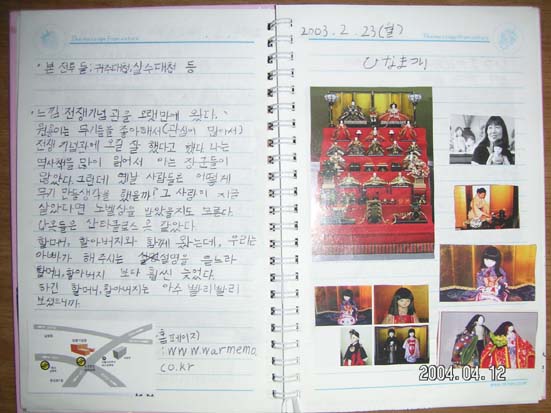 The message from nature
· 본 전투들: 귀주대첩, 살수대첩 등
· 느낌 전쟁기념관을 오랜만에 왔다.
원준이는 무기들을 좋아해서(관심이 많아서)
전쟁기념관에 오길 잘 했다고 했다. 나는
역사책을 많이 읽어서 아는 장군들이
많았다. 그런데 옛날 사람들은 어떻게
무기 만들생각을 했을까? 그 사람이 지금
살았다면 노벨상을 받았을지도 모른다.
할머니, 할아버지와 함께 왔는데, 우리는
아빠가 해 주시는 설명을 듣느라
할머니, 할아버지 보다 훨씬 늦었다.
하긴 할머니, 할아버지는 아주 빨리빨리
보셨으니까.
홈페이지)
:www.warmemo.
co.kr
2003. 2. 23(일)
The message from nature
ひなまつり
2004.04.12